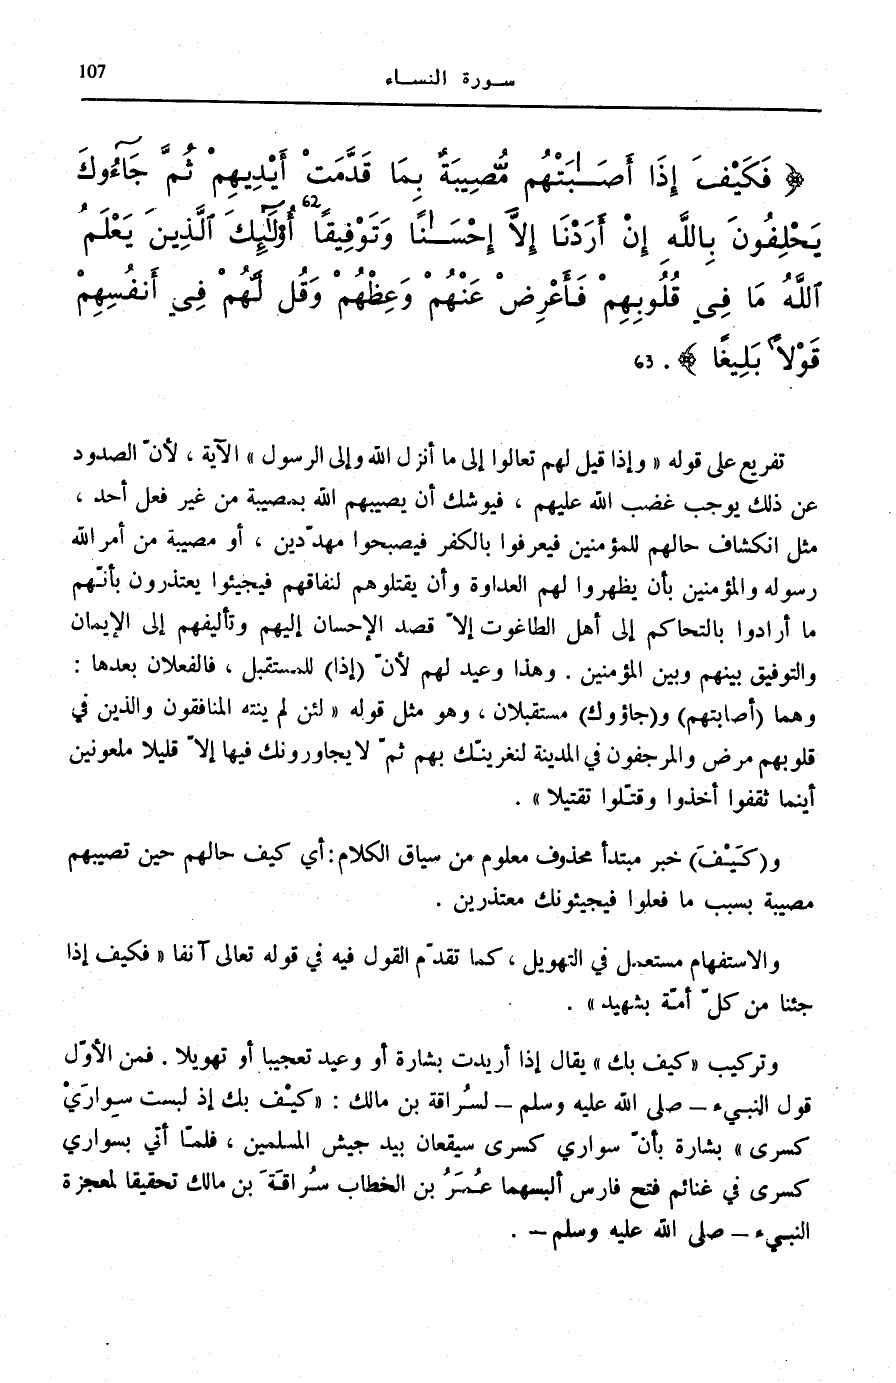 107
سورة النساء
﴿ فَكَيْفَ إِذَا أَصَـٰبَتْهُم مُّصِيبَةٌ بِمَا قَدَّمَتْ أَيْدِيهِمْ ثُمَّ جَآءُوكَ
يَحْلِفُونَ بِاللَّهِ إِنْ أَرَدْنَا إِلاَّ إِحْسَـٰنًا وَتَوْفِيقًا 62 أُوْلَـٰٓئِكَ ٱلَّذِينَ يَعْلَمُ
ٱللَّهُ مَا فِي قُلُوبِهِمْ فَأَعْرِضْ عَنْهُمْ وَعِظْهُمْ وَقُل لَّهُمْ فِي أَنفُسِهِمْ
قَوْلاً بَلِيغًا ﴾ . 63
تفريع على قوله « وإذا قيل لهم تعالوا إلى ما أنزل الله وإلى الرسول » الآية ، لأنّ الصدود
عن ذلك يوجب غضب الله عليهم ، فيوشك أن يصيبهم الله بمصيبة من غير فعل أحد ،
مثل انكشاف حالهم للمؤمنين فيعرفوا بالكفر فيصبحوا مهدّدين ، أو مصيبة من أمر الله
رسوله والمؤمنين بأن يظهروا لهم العداوة وأن يقتلوهم لنفاقهم فيجيئوا يعتذرون بأنّهم
ما أرادوا بالتحاكم إلى أهل الطاغوت إلاّ قصد الإحسان إليهم وتأليفهم إلى الإيمان
والتوفيق بينهم وبين المؤمنين . وهذا وعيد لهم لأنّ (إذا) للمستقبل ، فالفعلان بعدها :
وهما (أصابتهم) و(جاؤوك) مستقبلان ، وهو مثل قوله « لئن لم ينته المنافقون والذين في
قلوبهم مرض والمرجفون في المدينة لنغرينّك بهم ثمّ لا يجاورونك فيها إلاّ قليلا ملعونين
أينما ثقفوا أخذوا وقتّلوا تقتيلا » .
و(كَيْفَ) خبر مبتدأ محذوف معلوم من سياق الكلام : أي كيف حالهم حين تصيبهم
مصيبة بسبب ما فعلوا فيجيئونك معتذرين .
والاستفهام مستعمل في التهويل ، كما تقدّم القول فيه في قوله تعالى آنفا « فكيف إذا
جئنا من كلّ أمّة بشهيد » .
وتركيب « كيف بك » يقال إذا أريدت بشارة أو وعيد تعجيبا أو تهويلا . فمن الأوّل
قول النبيء – صلى الله عليه وسلم – لسُراقة بن مالك : « كيْف بك إذ لبست سوارَيْ
كسرى » بشارة بأنّ سواري كسرى سيقعان بيد جيش المسلمين ، فلمّا أتي بسواري
كسرى في غنائم فتح فارس ألبسهما عُمَرُ بن الخطاب سُراقَةَ بن مالك تحقيقا لمعجزة
النبيء – صلى الله عليه وسلم – .